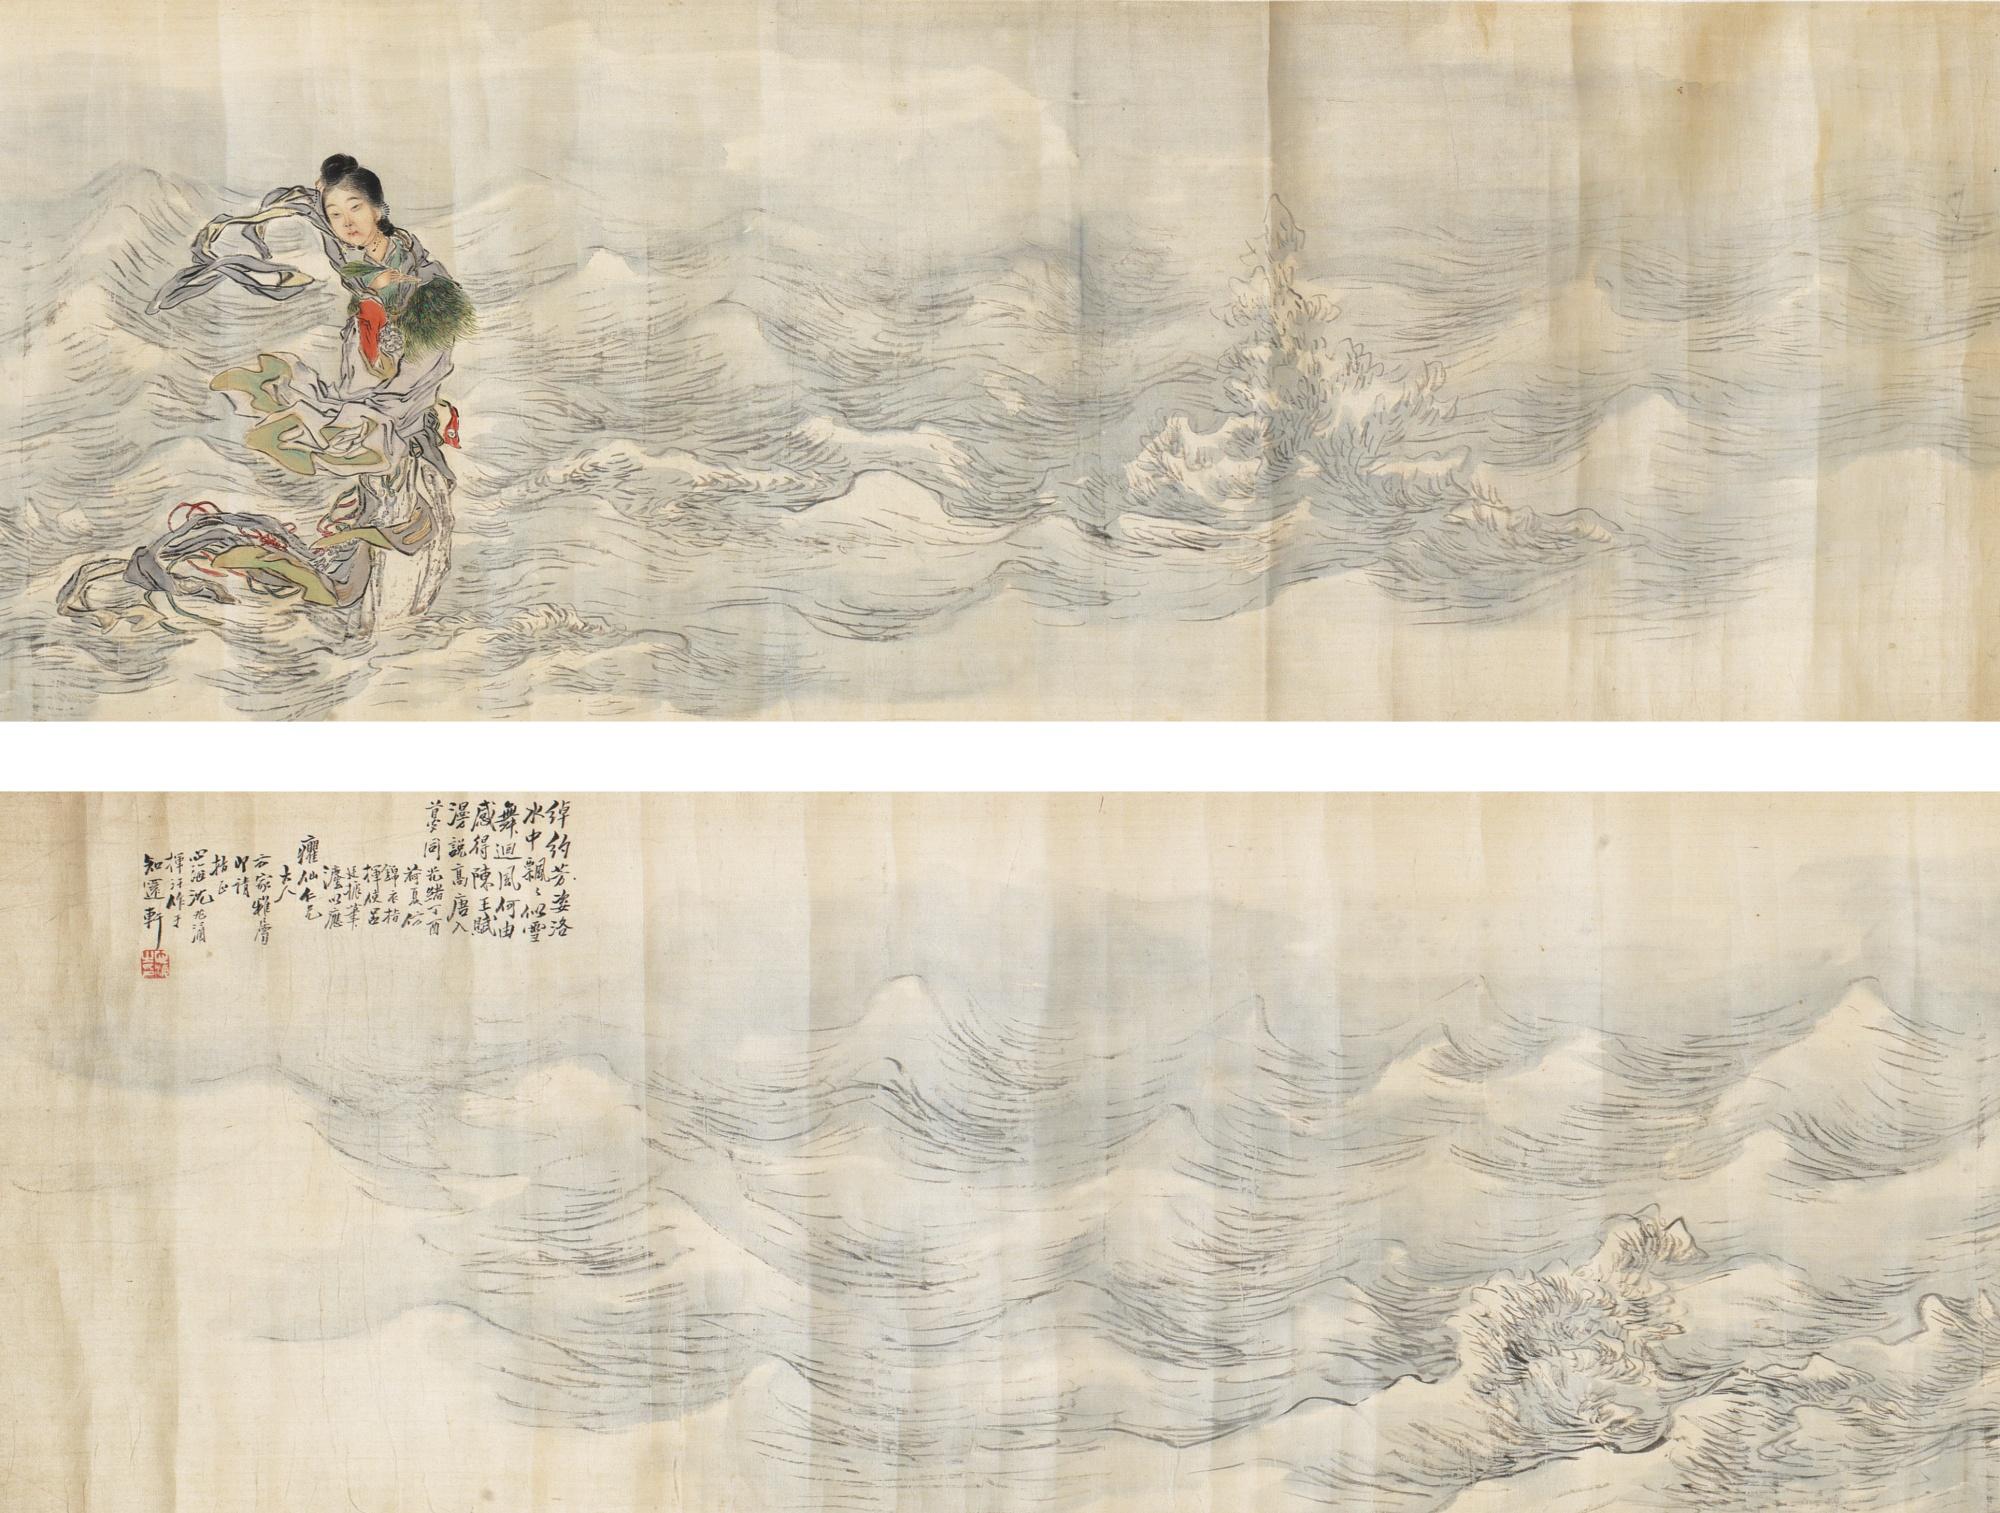 綽約芳姿洛
水中飄〻似雪
舞迴風何由
感得陳王賦
漫說高唐入
夢同 光緒丁酉
荷夏仿
錦衣指
揮使呂
廷振筆
法以應
癯仙仁兄
大人
方家雅屬
即請
指正
四海沈兆涵
揮汗作于
知還軒